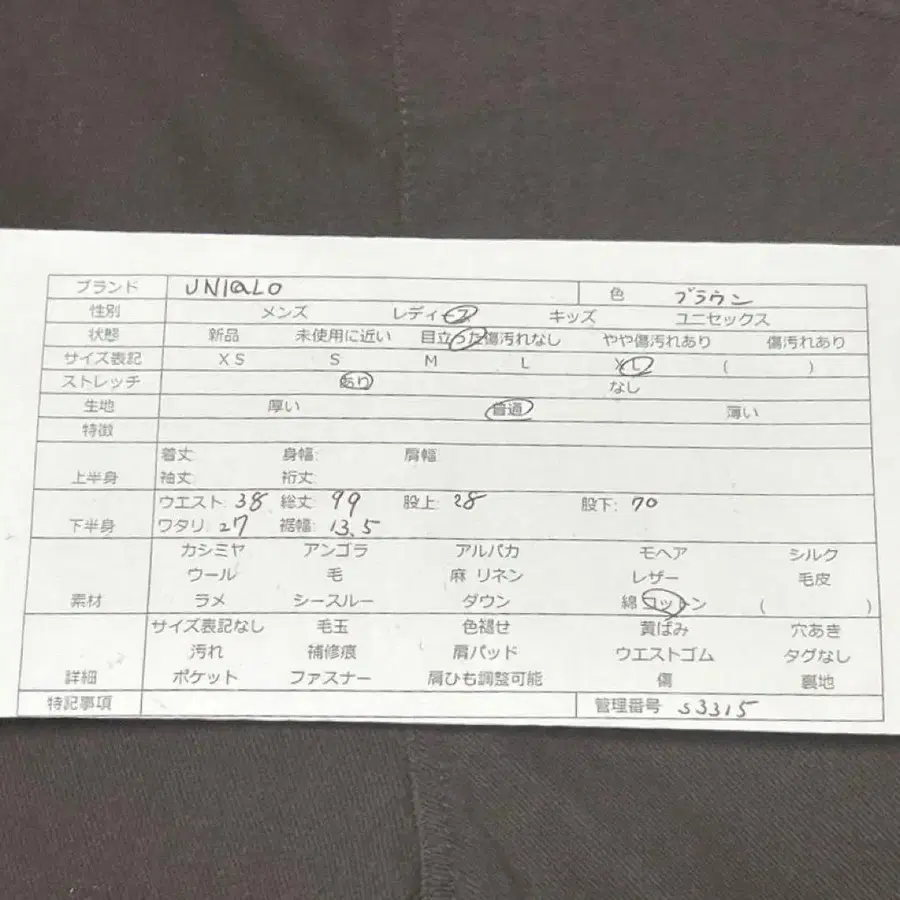 ブランド UNIQLO 色 ブラウン
性別 メンズ レディース キッズ ユニセックス
状態 新品 未使用に近い 目立った傷汚れなし やや傷汚れあり 傷汚れあり
サイズ表記 XS S M L XL ( )
ストレッチ あり なし
生地 厚い 普通 薄い
特徴
上半身 着丈 身幅: 肩幅
袖丈 裄丈
下半身 ウエスト: 38 総丈: 99 股上: 28 股下: 70
ワタリ: 27 裾幅: 13.5
素材 カシミヤ アンゴラ アルパカ モヘア シルク
ウール 毛 麻 リネン レザー 毛皮
ラメ シースルー ダウン 綿 コットン ( )
詳細 サイズ表記なし 毛玉 色褪せ 黄ばみ 穴あき
汚れ 補修痕 肩パッド ウエストゴム タグなし
ポケット ファスナー 肩ひも調整可能 傷 裏地
特記事項 管理番号 S3315